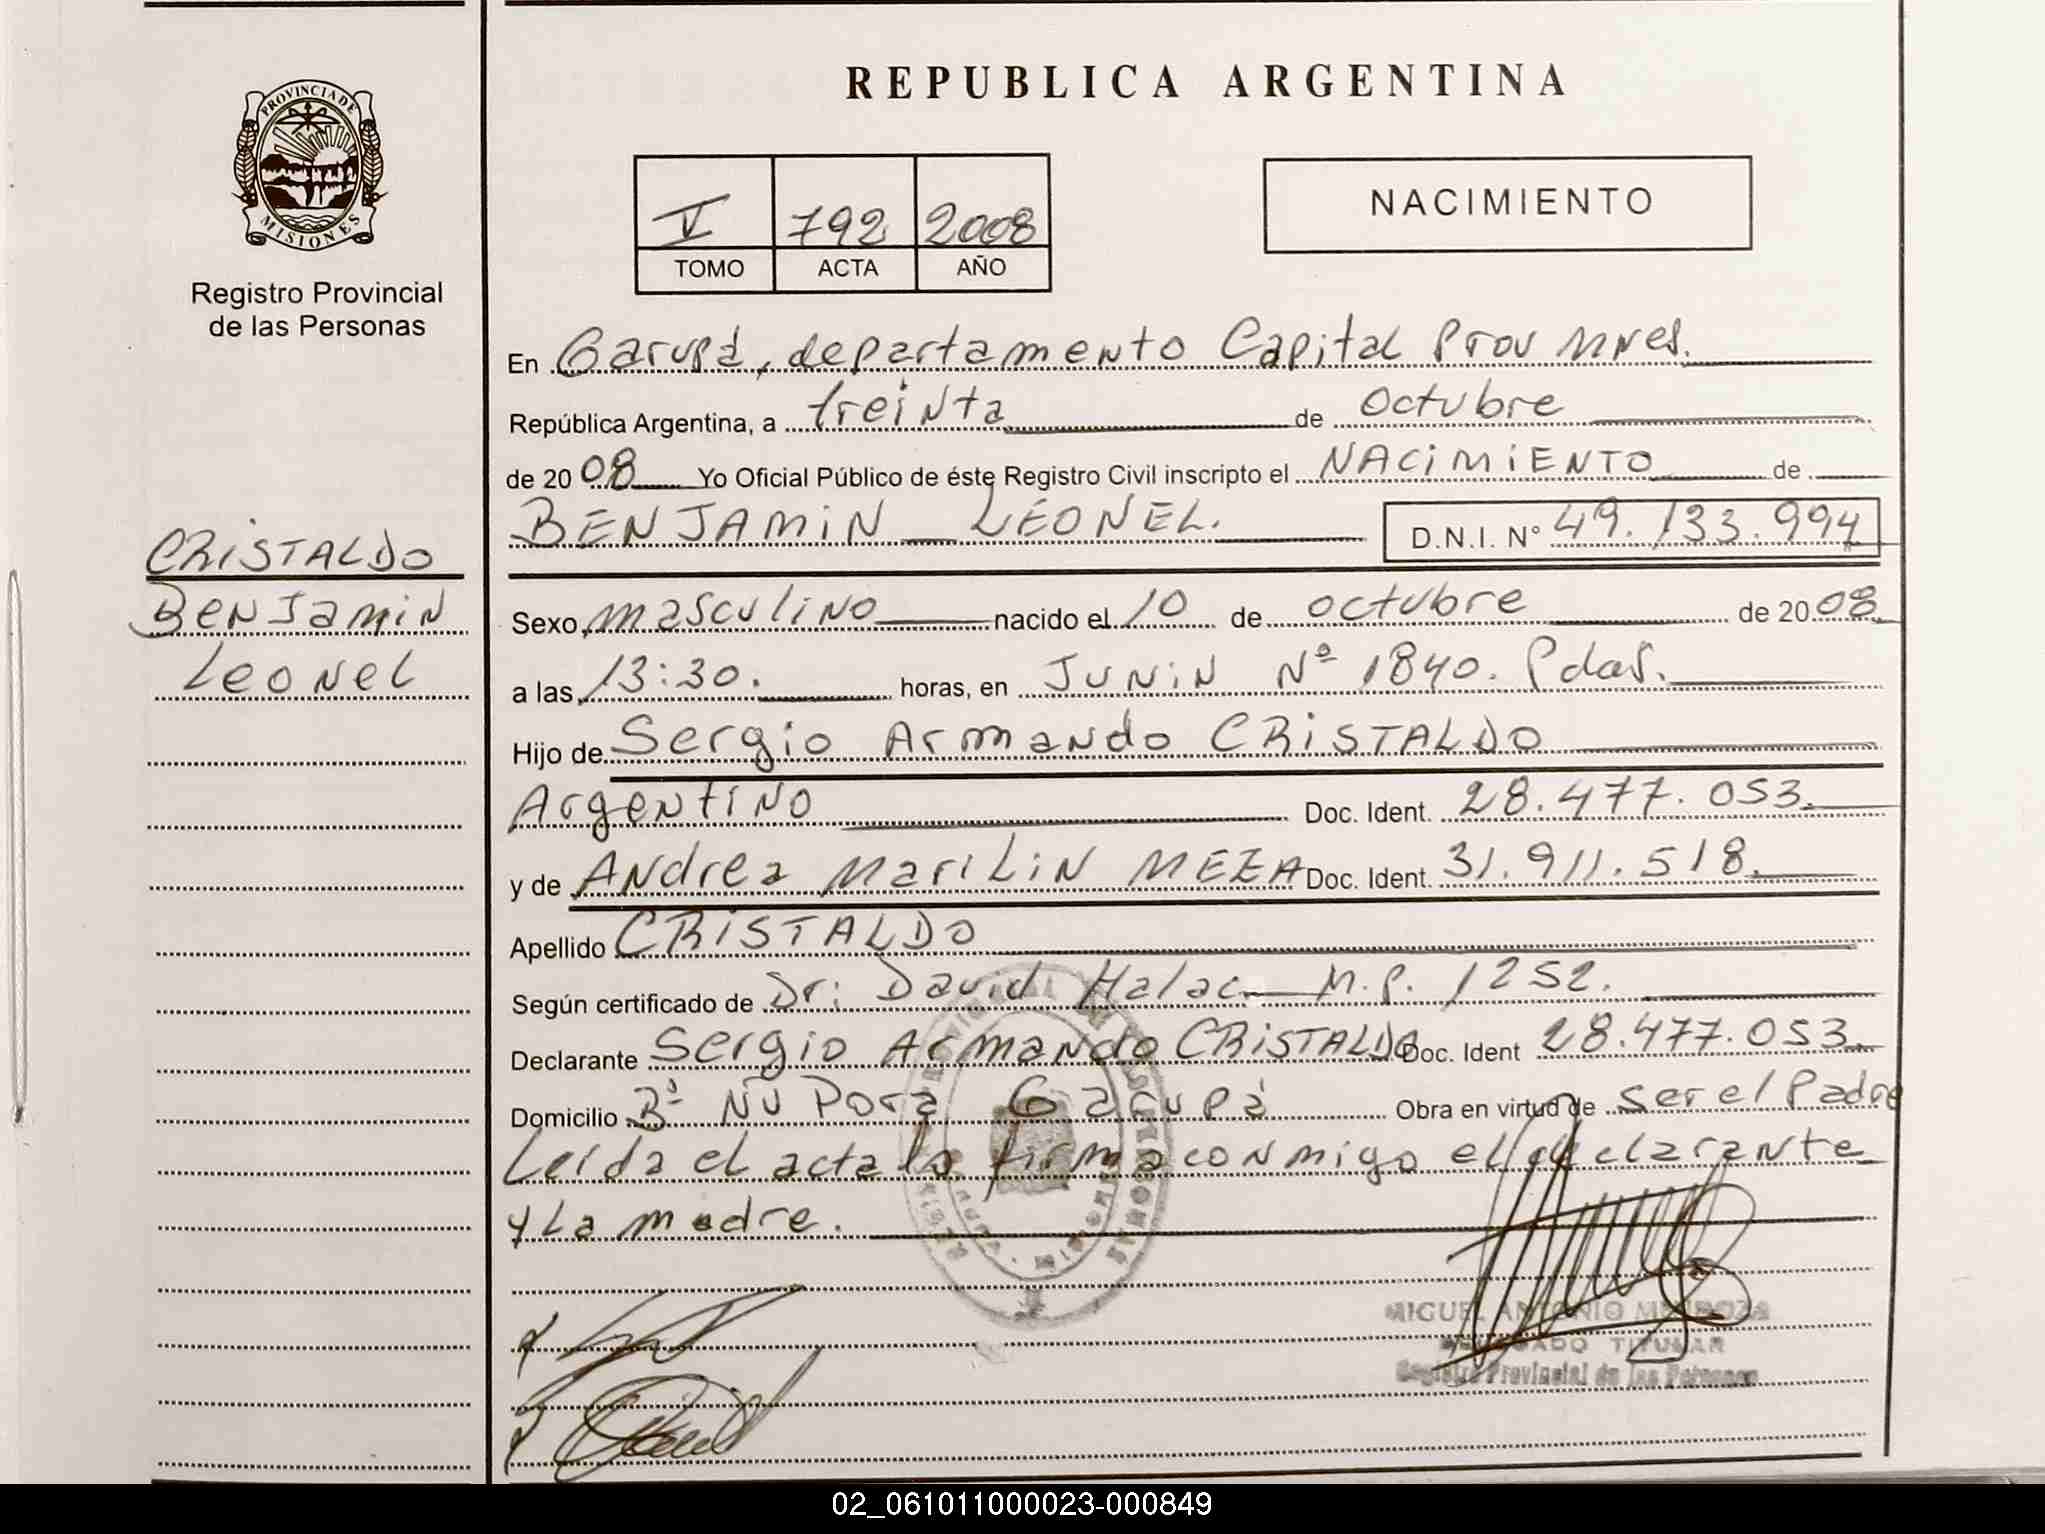 REPUBLICA ARGENTINA
PROVINCIA DE
MISIONES
Registro Provincial
de las Personas
V 792 2008
TOMO ACTA AÑO
NACIMIENTO
CRISTALDO
Benjamin
Leonel
En Garupá, departamento Capital Prov Mnes.
República Argentina, a treinta de octubre
de 2008 Yo Oficial Público de éste Registro Civil inscripto el NACIMIENTO de
BENJAMIN LEONEL. D.N.I. Nº 49.133.994
Sexo masculino nacido el 10 de octubre de 2008
a las 13:30. horas, en JUNIN Nº 1840. Pdas.
Hijo de Sergio Armando CRISTALDO
Argentino Doc. Ident. 28.477.053.
y de Andrea Marilin MEZA Doc. Ident. 31.911.518.
Apellido CRISTALDO
Según certificado de Dr: David Halac M.P. 1252.
Declarante Sergio Armando CRISTALDO Doc. Ident 28.477.053.
Domicilio Bº Ñu Pora Garupá Obra en virtud de ser el Padre
Leída el acta la firma conmigo el declarante
y la madre.
MIGUEL ANTONIO MENDOZA
DELEGADO TITULAR
Registro Provincial de las Personas
02_061011000023-000849